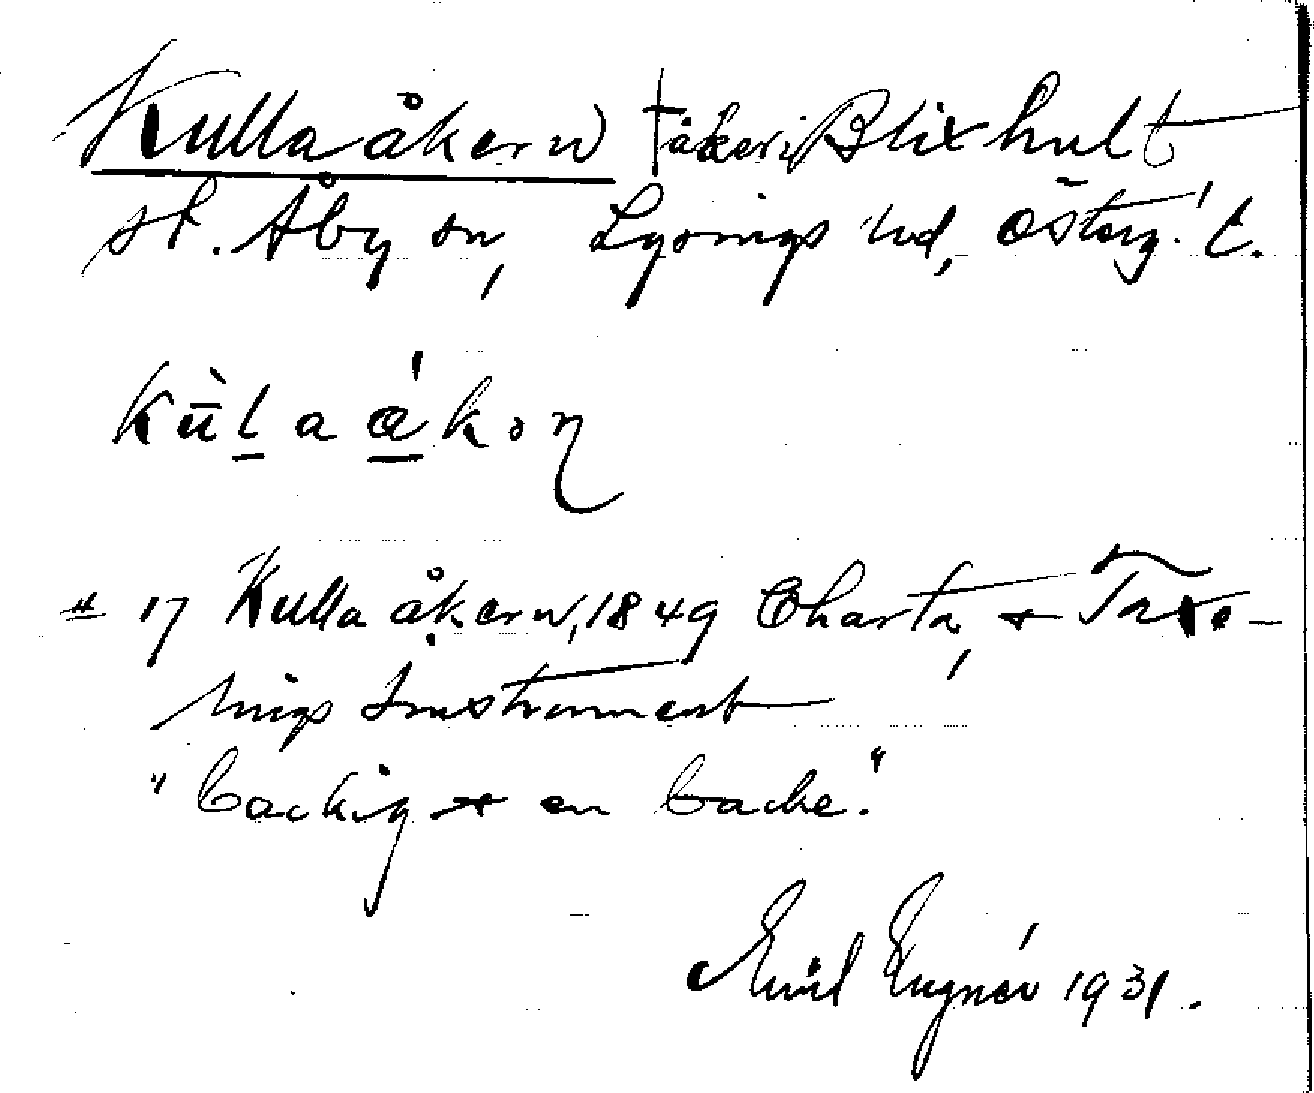 Kullaåkern † åker i Blixhult
st. Åby sn, Lysings hd, Österg. l.
kùlaákən
# 17 Kulla åkern, 1849 Charta, + Taxe-
rings Instrument
"backig + en backe."
Emil Eugnér 1931.